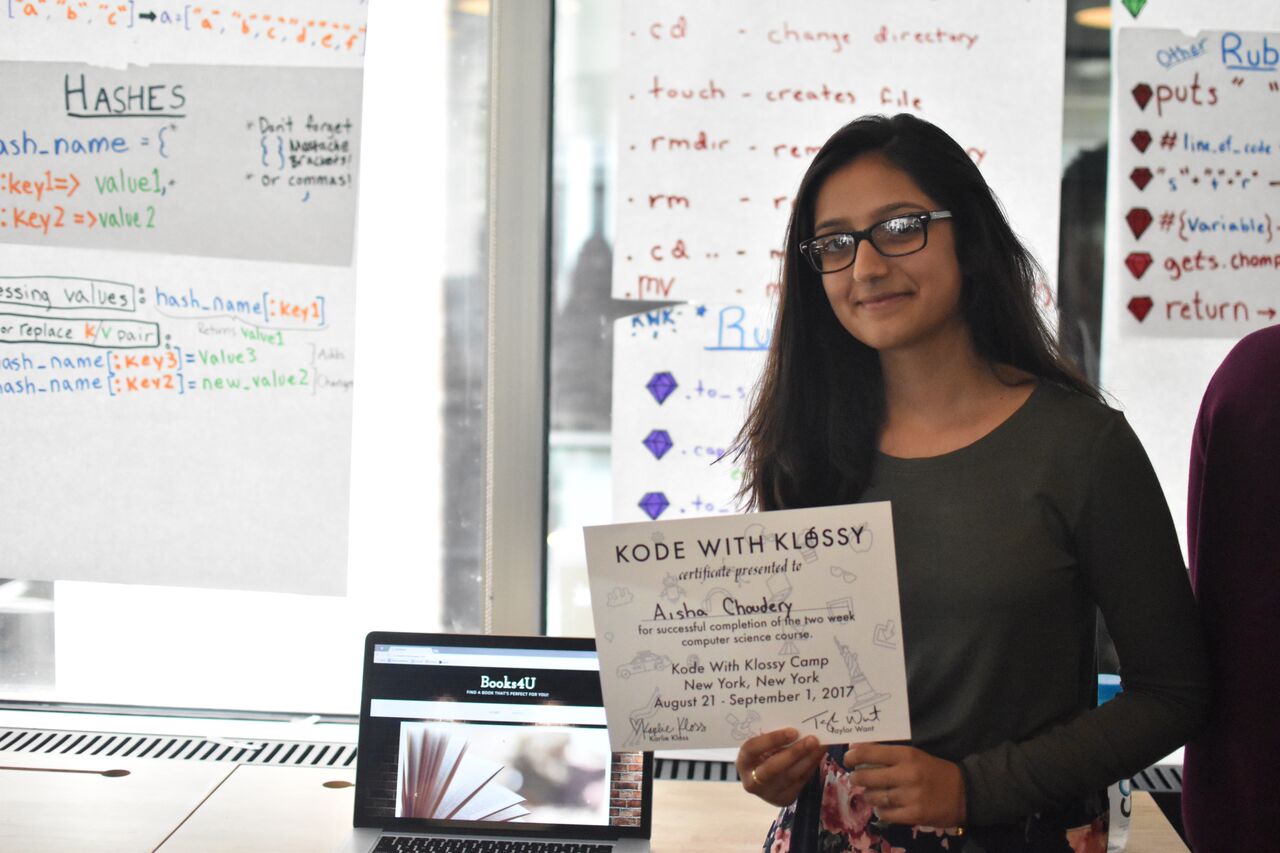 "b", "c"] → a = ["a", "b", "c", d, e, f"
HASHES
hash_name = {
:key1=> value1,
:key2 => value2
* Don't forget
{ } Mustache
Brackets!
* Or commas!
,
essing values : hash_name[:key1]
Returns value1
or replace k/v pair :
hash_name[:key3] = value3 ] Adds
hash_name[:key2] = new_value2 ] Changes
. cd - change directory
. touch - creates file
. rmdir -
. rm -
. cd .. -
. mv
KWK
Ru
.to_s
.cap
.to_
Other Rub
puts " "
#line_of_code
"s"+"t"+"r"
#{Variable}
gets.chomp
return →
KODE WITH KLOSSY
certificate presented to
Aisha Choudery
for successful completion of the two week
computer science course.
Kode With Klossy Camp
New York, New York
August 21 - September 1, 2017
Karlie Kloss
Karlie Kloss
Taylor Want
Books4U
FIND A BOOK THAT'S PERFECT FOR YOU!